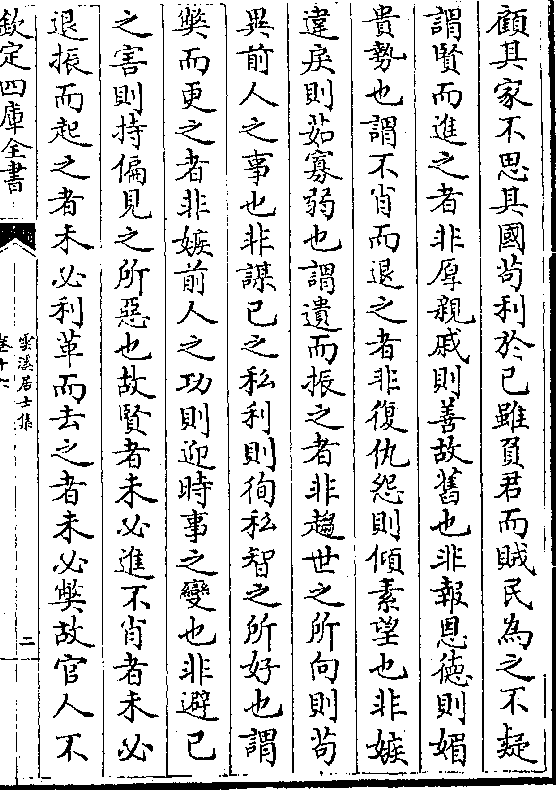 顧其家不思其國苟利於已雖負君而賊民為之不疑
謂賢而進之者非厚親戚則善故舊也非報恩德則媚
貴勢也謂不肖而退之者非復仇怨則傾素望也非嫉
違戾則茹寡弱也謂遺而振之者非趨世之所向則苟
異前人之事也非謀已之私利則徇私智之所好也謂
獘而更之者非嫉前人之功則迎時事之變也非避已
之害則持偏見之所惡也故賢者未必進不肖者未必
退振而起之者未必利革而去之者未必獘故官人不
欽定四庫全書
雲溪居士集
卷十六
二